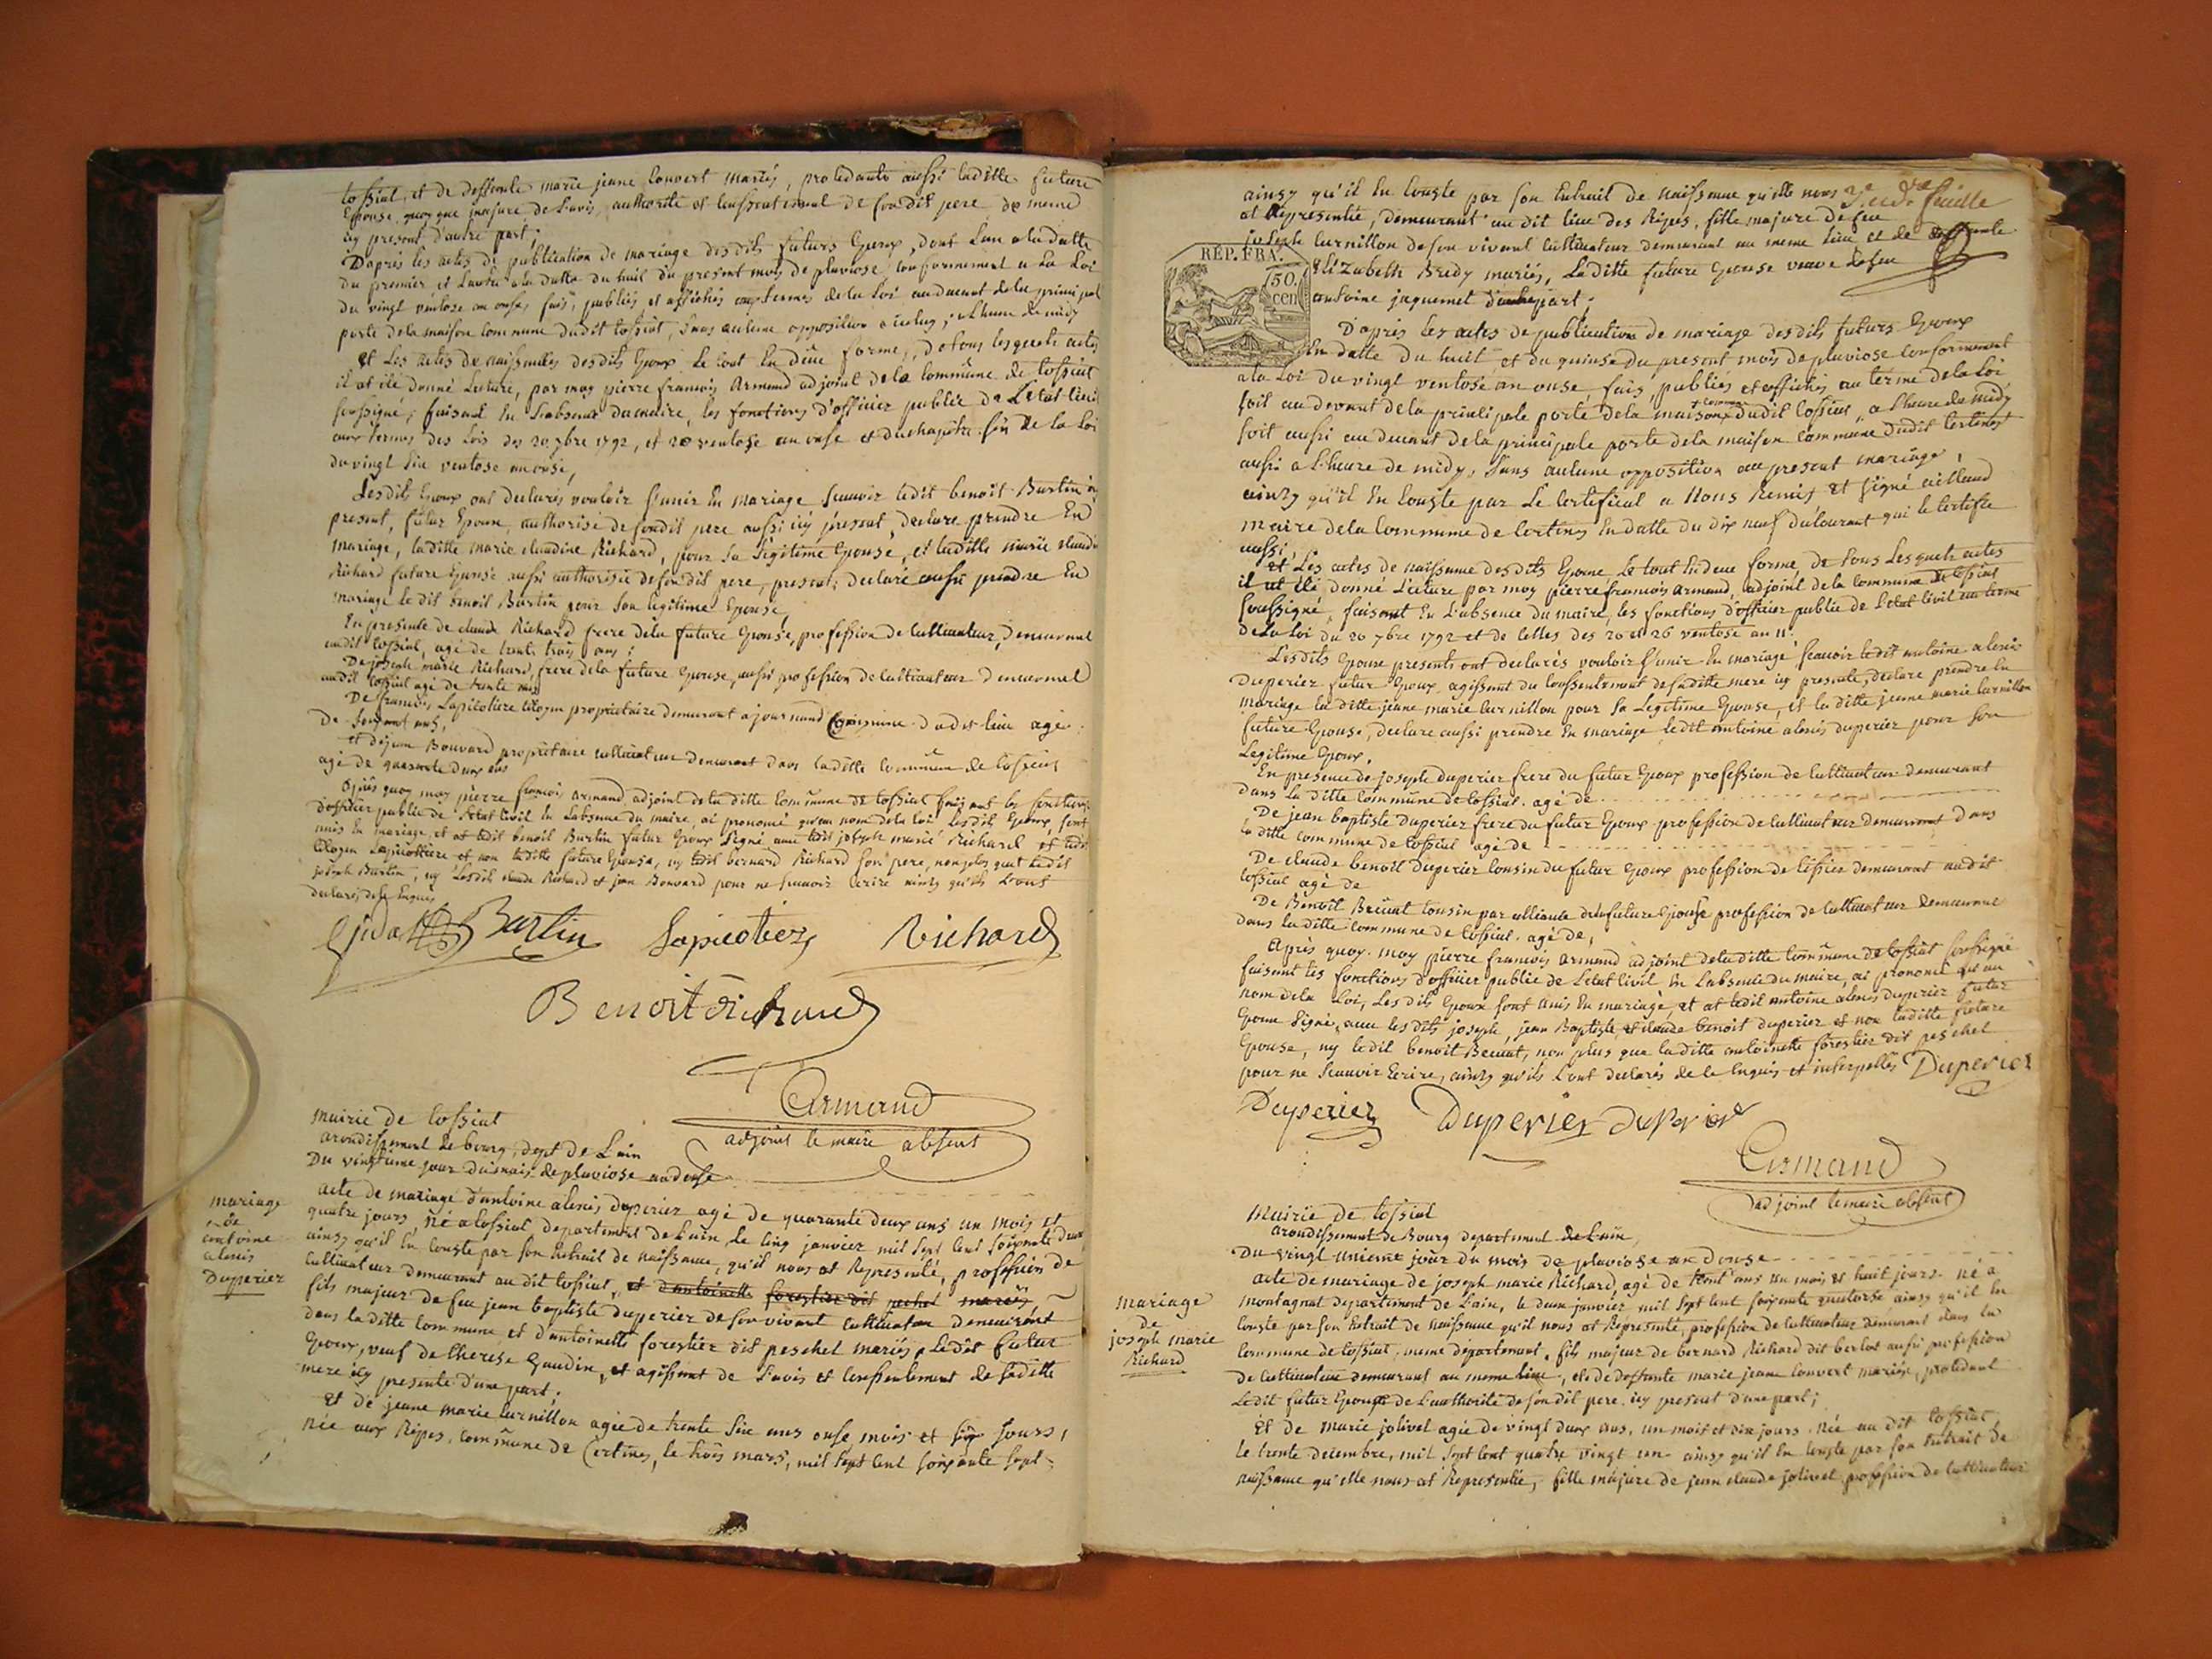 tossiat, et de deffunte marie jeanne Convert mariés, procedante aussi laditte future
Epouse quoy que majure de l'avis, authorité et consentement de sondit pere de meme
icy present d'autre part;
D'apres les actes de publication de mariage desdits futurs Epoux, dont l'un a la datte
du premier et l'autre a la datte du huit du present mois de pluviose, conformement a la Loi
du vingt ventose an onse, fais, publiés et affichés aux termes de la Loi au devant de la principal
porte de la maison commune dudit tossiat, sans aucune opposition a icelus, a l'heure de midy
et les actes de naissances desdits Epoux Le tout En düe forme, de tous lesquels actes
il at été donné Lecture, par moy pierre francois Armand adjoint de la Commune de tossiat
soussigné; faisant En l'absence du maire, les fonctions d'officier public de L'etat Civil
aux termes des Lois des 20 7bre 1792, et 20 ventose an onse et du chapitre six de la Loi
du vingt six ventose an onse,
Lesdits Epoux ont declarés vouloir s'unir En mariage scavoir ledit benoit Burtin icy
present, futur Epoux, authorisé de sondit pere aussi icy present, declare prendre En
mariage, laditte marie claudine Richard, pour sa Légitime Epouse, et laditte marie claudi
Richard future Epouse aussi authorisée de sondit pere, present, declare aussi prendre En
mariage le dit benoit Burtin pour son legitime Epoux,
En presence de claude Richard frere de la future Epouse, profession de cultivateur, demeurant
audit tossiat, agé de trente trois ans;
De joseph marie Richard, frere de la future Epouse, aussi profession de cultivateur demeurant
audit tossiat agé de trente ans
De francois Lapicotiere citoyen proprietaire demeurant a journand Commune dudit lieu agé
De soixant ans,
et de jean Bouvard proprietaire cultivateur demeurant dans laditte Commune de tossiat
agé de quarante deux ans
Après quoy moy pierre francois armand adjoint de la ditte Commune de tossiat faisant les fonctions
d'officier public de l'etat Civil En L'absence du maire, ai prononcé qu'au nom de la loi Lesdits Epoux sont
unis En mariage, et at ledit benoit Burtin futur Epoux signé avec ledit joseph marie Richard et ledit
citoyen Lapicottiere et non laditte future Epouse, ny ledit bernard Richard son pere, non plus que ledit
joseph Burtin, ny Lesdits claude Richard et jean Bouvard pour ne scavoir Ecrire ainsy qu'ils L'ont
declarés de ce Enquis
Burtin Lapicotiere Richard
Benoit Richard
Armand
adjoint le maire absent
mairie de tossiat
arondissement de bourg, dept de L'ain
Du vingtieme jour du mois de pluviose an douse
mariage
de
antoine
alexis
Duperier
acte de mariage d'antoine alexis duperier agé de quarante deux ans un mois et
quatre jours, né a tossiat departement de L'ain, le cinq janvier mil sept cent soixante deux
ainsy qu'il En conste par son Extrait de naissance, qu'il nous at Representé, profession de
cultivateur demeurant au dit tossiat, et d'antoinette forestier dit pechet mariés
fils majeur de feu jean baptiste duperier de son vivant cultivateur demeurant
dans laditte Commune et d'antoinette forestier dit peschet mariés, Ledit futur
Epoux, veuf de therese Gaudin, et agissant de l'avis et Consentement de saditte
mere icy presente d'une part;
Et de jeanne marie Curnillon agée de trente six ans onse mois et six Jours,
née aux Ripes, Commune de Certines, le trois mars, mil sept cent soixante sept,
3e et de feuille
ainsy qu'il En conste par son Extrait de naissance qu'elle nous
at Representée, demeurant au dit lieu des Ripes, fille majure de feu
joseph Curnillon de son vivant Cultivateur demeurant au meme lieu et de deffunte
Elizabeth Bredy mariés, Laditte future Epouse veuve de feu
antoine jaquemet d'autre part;
RÉP. FRA.
50.
cen
D'apres les actes de publication de mariage desdits futurs Epoux
En datte du huit et du quinse du present mois de pluviose conformement
a la Loi du vingt ventose an onse, fais, publiés et affichés au terme de la Loi
soit au devant de la principale porte de la maison commune dudit tossiat, a l'heure de midy
soit aussi au devant de la principale porte de la maison Commune dudit Certines
aussi a l'heure de midy, sans aucune opposition au present mariage,
ainsy qu'il En conste par Le Certificat a Nous Remis et signé
maire de la Commune de Certines En datte du dix neuf du courant qui le certifie
aussi,
et Les actes de naissance desdits Epoux, Le tout En deue forme, de tous Lesquels actes
il at été donné Lecture par moy pierre francois armand, adjoint de la Commune de tossiat
soussigné, faisant En L'absence du maire, les fonctions d'officier public de L'etat Civil au terme
de la Loi du 20 7bre 1792 et de Celles des 20 et 26 ventose an 11e.
Lesdits Epoux presents ont declarés vouloir s'unir En mariage scavoir ledit antoine alexis
Duperier futur Epoux agissant du Consentement de saditte mere icy presente, declare prendre En
mariage laditte jeanne marie Curnillon pour sa Legitime Epouse, et laditte jeanne marie Curnillon
future Epouse, declare aussi prendre En mariage ledit antoine alexis duperier pour son
Legitime Epoux.
En presence de joseph duperier frere du futur Epoux profession de Cultivateur demeurant
dans La ditte Commune de tossiat agé de
De jean baptiste duperier frere du futur Epoux profession de cultivateur demeurant dans
la ditte commune de tossiat agé de
De claude benoit duperier cousin du futur Epoux profession de tissier demeurant audit
tossiat agé de
De Benoit Beccat cousin par alliance de la future Epouse profession de Cultivateur demeurant
dans laditte Commune de tossiat agé de,
Après quoy moy pierre francois armand adjoint de laditte Commune de tossiat soussigné
faisant les fonctions d'officier public de L'etat Civil En L'absence du maire, ai prononcé qu'au
nom de la Loi, Lesdits Epoux sont unis En mariage, et at ledit antoine alexis duperier futur
Epoux signé, avec les dits joseph, jean Baptiste, et claude benoit duperier et non laditte future
Epouse, ny ledit benoit Beccat, non plus que laditte antoinette forestier dit peschet
pour ne scauvoir Ecrire, ainsy qu'ils L'ont declarés de ce Enquis et interpellés Duperier
Duperier Duperier duPerier
Armand
adjoint le maire absent
Mairie de tossiat
arondissement de Bourg departement de L'ain,
Du vingt unieme jour du mois de pluviose an douse
mariage
de
joseph marie
Richard
acte de mariage de joseph marie Richard, agé de trent ans un mois et huit jours né a
montagnat departement de L'ain, le deux janvier mil sept cent soixante quatorse ainsy qu'il En
conste par son Extrait de naissance qu'il nous at Representé, profession de cultivateur demeurant dans la
Commune de tossiat, meme departement, fils majeur de bernard Richard dit berlot aussi profession
de Cultivateur demeurant au meme lieu, et de deffunte marie jeanne Convert mariés, procedant
Ledit futur Epoux de L'authorité de sondit pere icy present d'une part;
Et de marie jolivet agée de vingt deux ans, un mois et dix jours. née au dit tossiat,
le trente decembre, mil sept cent quatre vingt un ainsy qu'il En conste par son Extrait de
naissance qu'elle nous at Representée, fille majure de jean claude jolivet profession de cultivateur